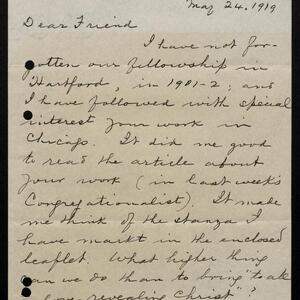 May 24. 1919
Dear Friend
I have not for-
gotten our fellowship in
Hartford, in 1901-2; and
I have followed with special
interest your work in
Chicago. It did me good
to read the article about
your work (in last week's
Congregationalist). It made
me think of the stanza I
have markt in the enclosed
leaflet. What higher thing
can we do than to bring "to all
revealing Christ"?